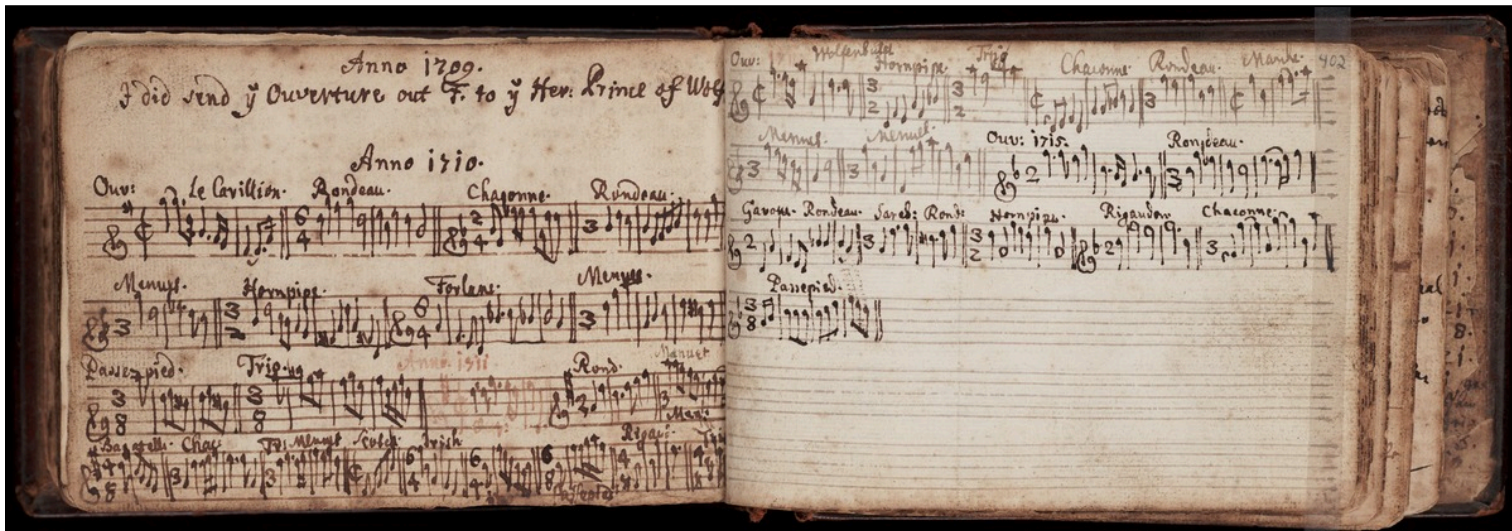 Anno 1709.
I did send ÿ Ouverture out F. to ÿ Her: Prince of Wolf
Anno 1710.
Ouv: Le Carillion. Rondeau. Chaconne. Rondeau.
Menuet. Hornpipe. Forlane. Menuet.
Passepied. Trio. Anno 1711 Rond. Menuet
Man:
Bagatelle. Chac: Menuet Scotch. Irish Rigau:
Ouv: Wolfenbutel Hornpipe. Trio Chaconne. Rondeau. Marche. 402
Menuet. Menuet. Ouv: 1715. Rondeau.
Gavott. Rondeau. Sarab: Rond: Hornpipe. Rigaudon. Chaconne.
Passepied.